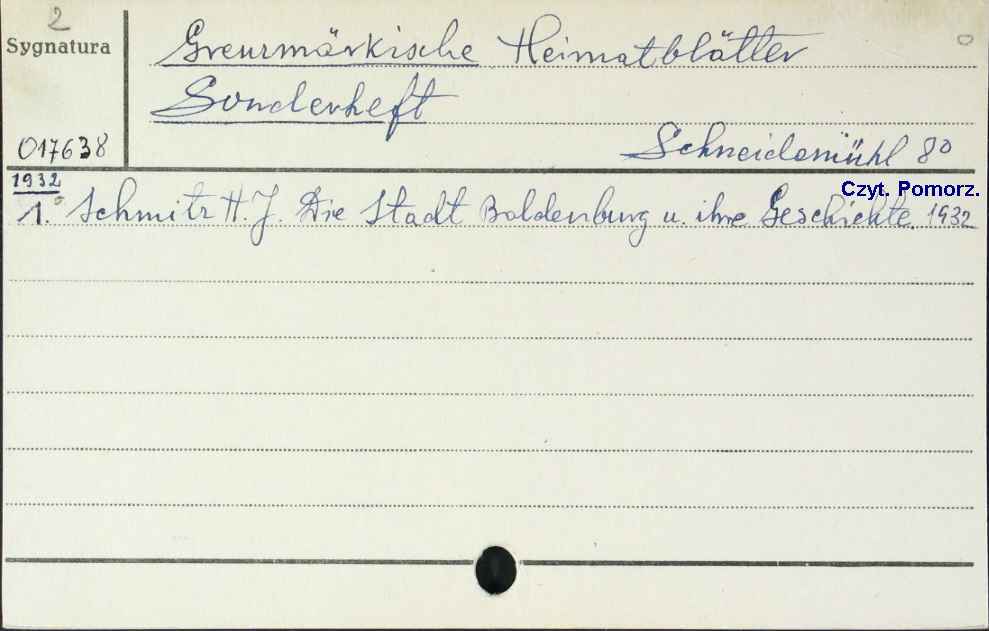 2
Sygnatura
Grenzmärkische Heimatblätter
Sonderheft
017638
Schneidemühl 8º
1932
Czyt. Pomorz.
1. Schmitz H. J. Die Stadt Baldenburg u. ihre Geschichte. 1932